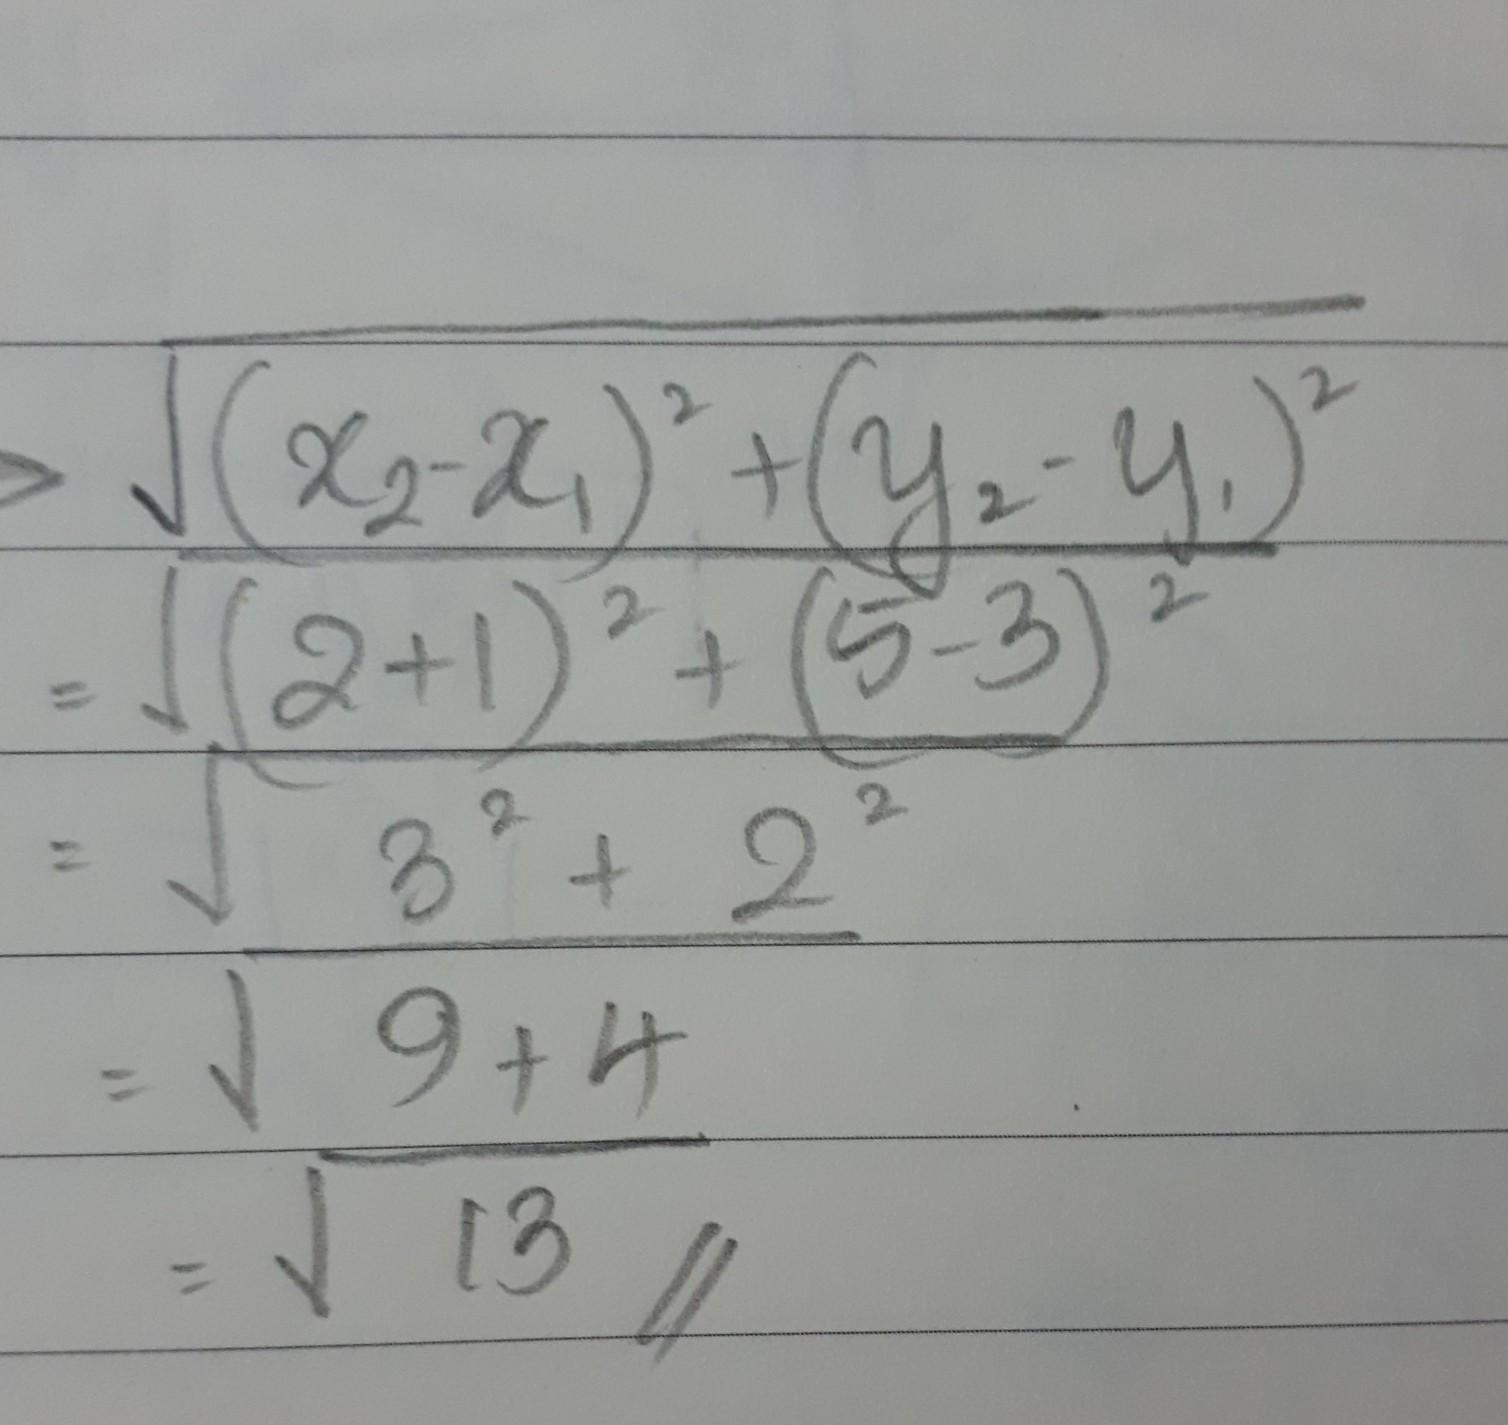 > √(x₂-x₁)² + (y₂-y₁)²
= √(2+1)² + (5-3)²
= √3² + 2²
= √9+4
= √13 //